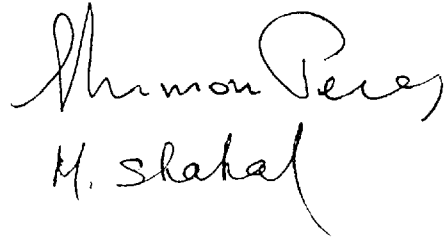 Shimon Peres
M. Shahal